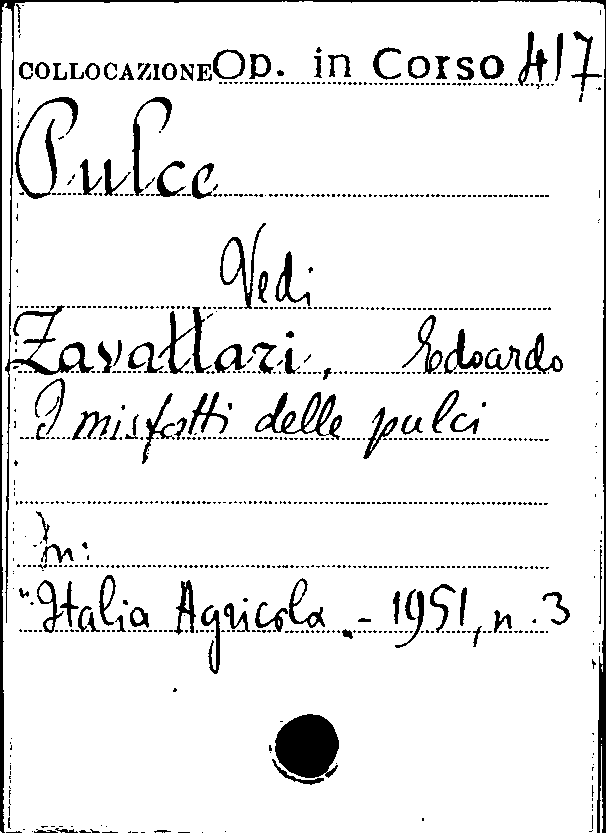 COLLOCAZIONE Op. in Corso 417
Pulce
Vedi
Zavattari, Edoardo
I misfatti delle pulci
In:
"Italia Agricola„ - 1951, n. 3